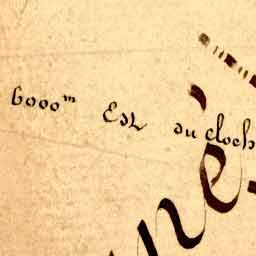 6000ᵐ Est du cloch
né